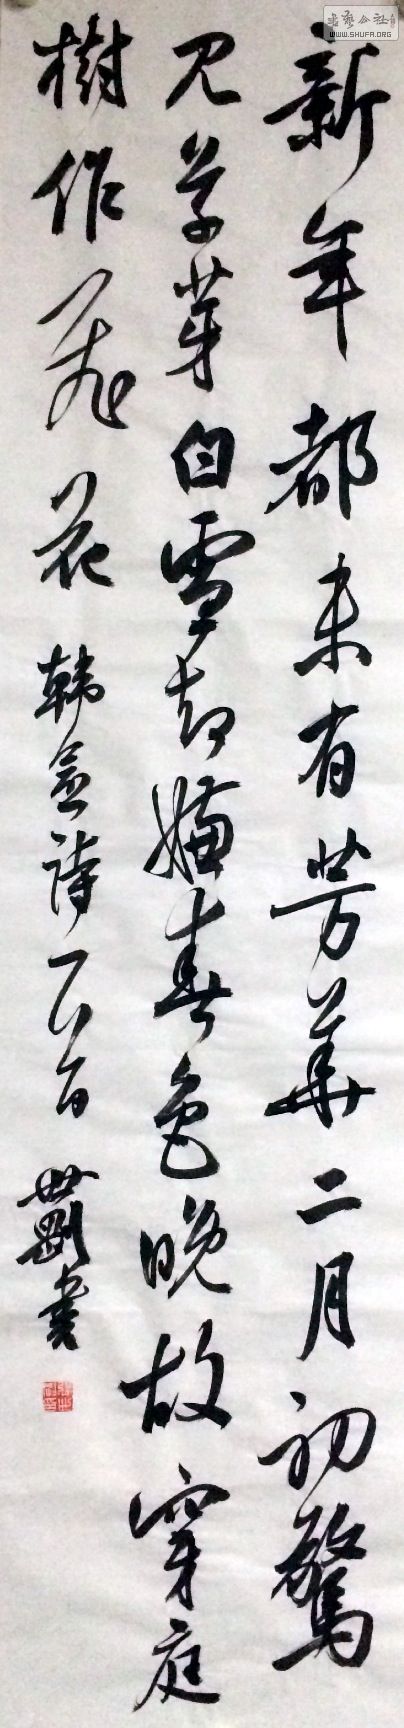 新年都未有芳華二月初驚
見草芽白雪却嫌春色晚故穿庭
樹作飛花 韓愈詩一首 世剛書
書藝公社
WWW.SHUFA.ORG